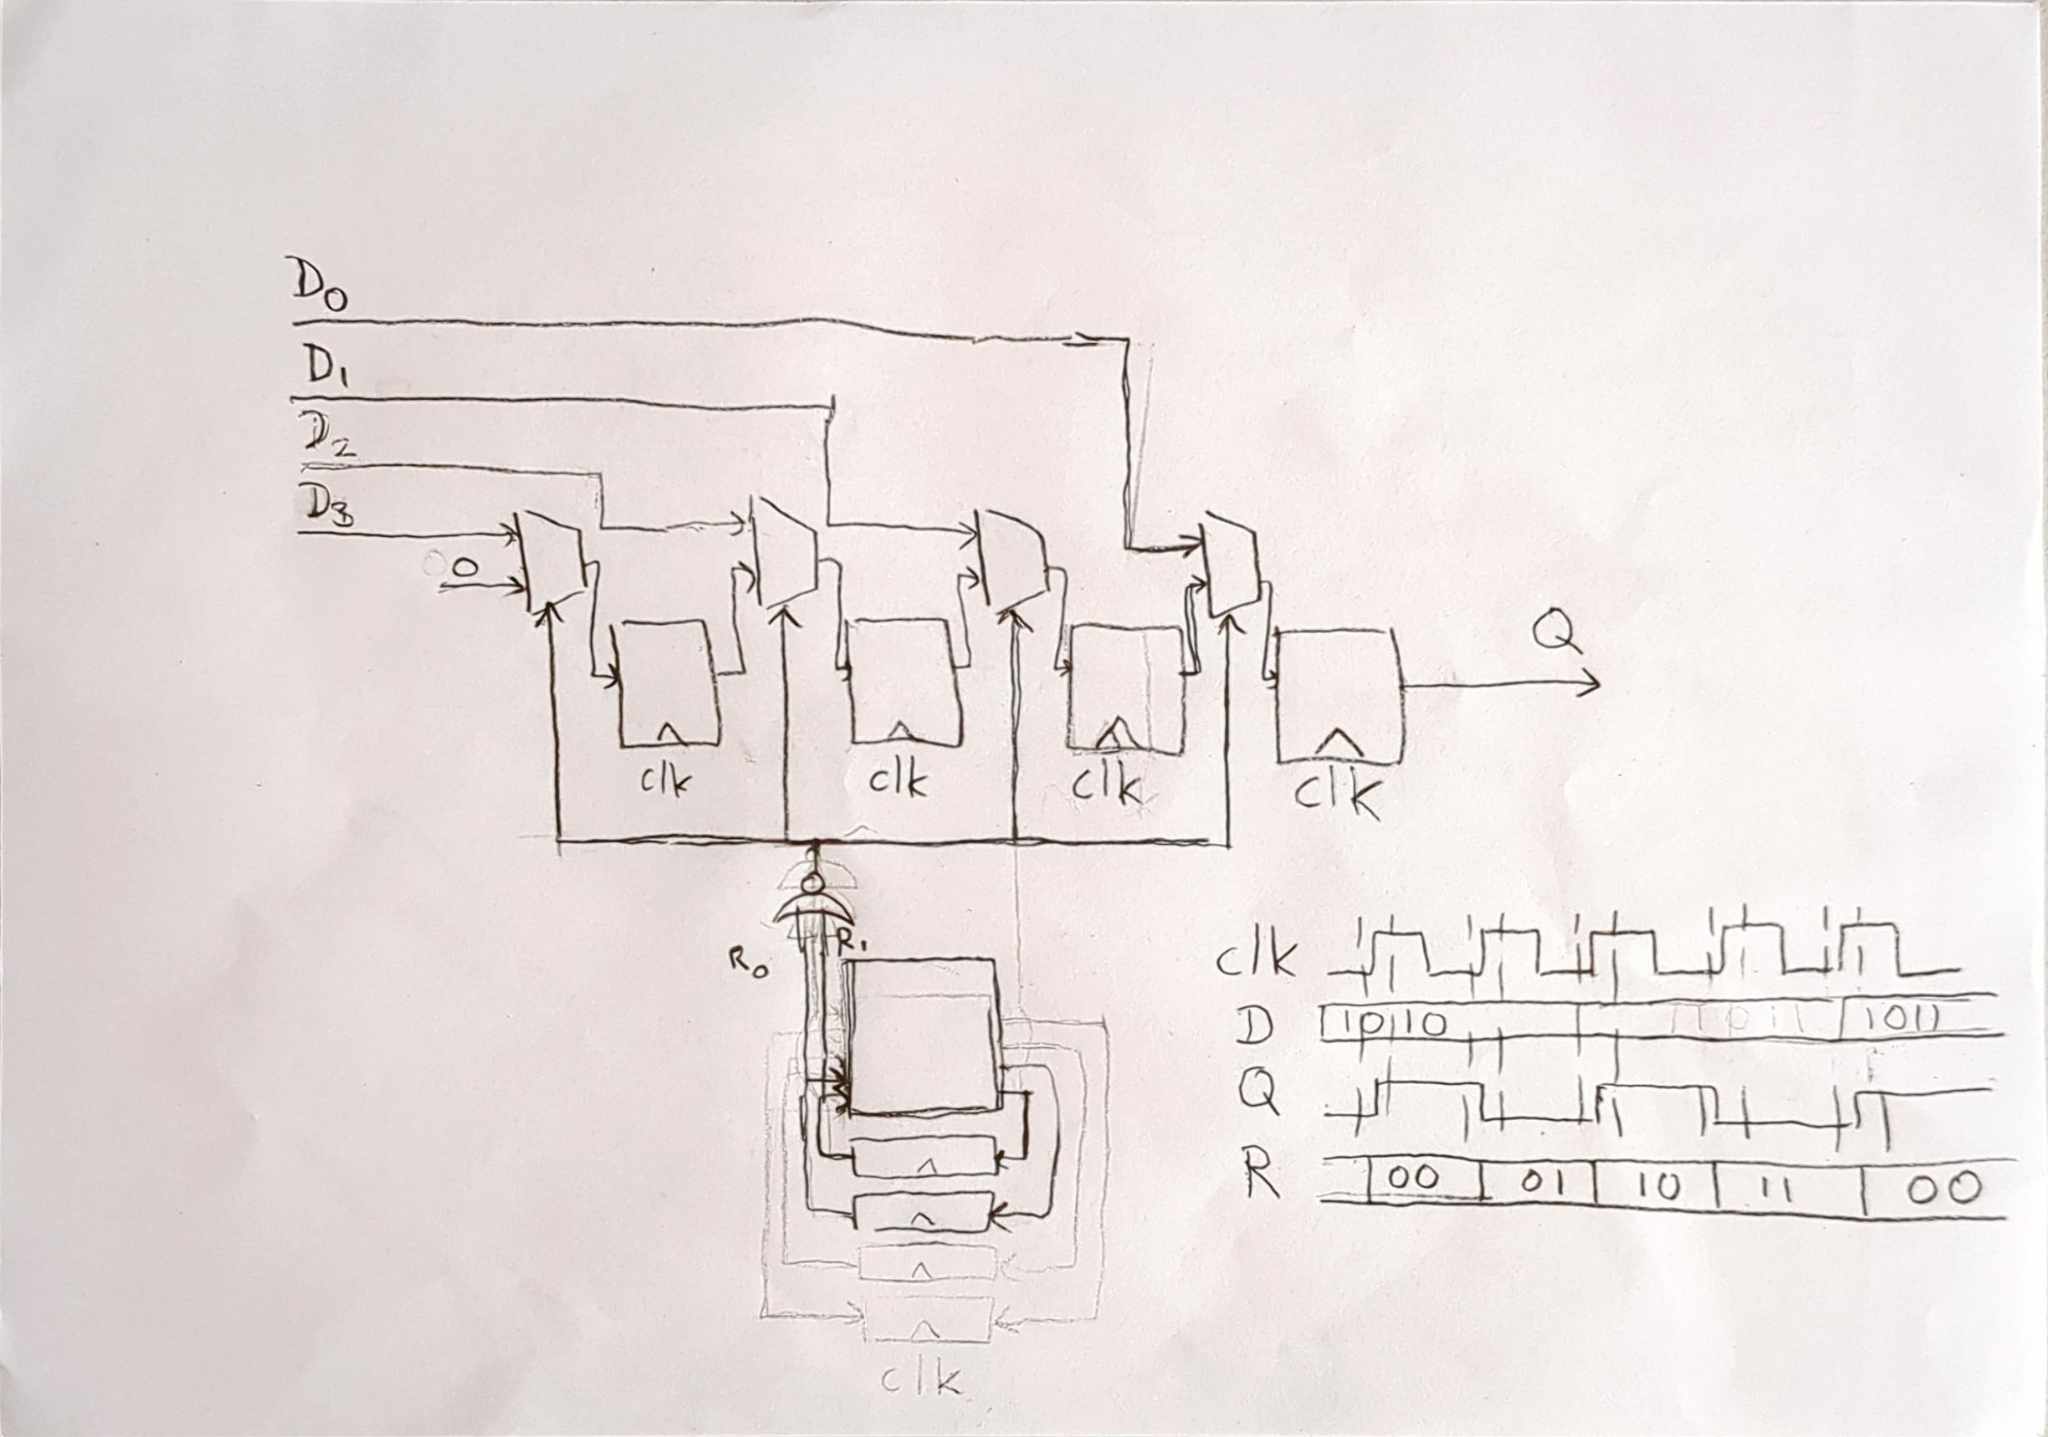 D0
D1
D2
D3
0
Q
clk clk clk clk
R0 R1
clk
clk
D 10110 1011
Q
R 00 01 10 11 00